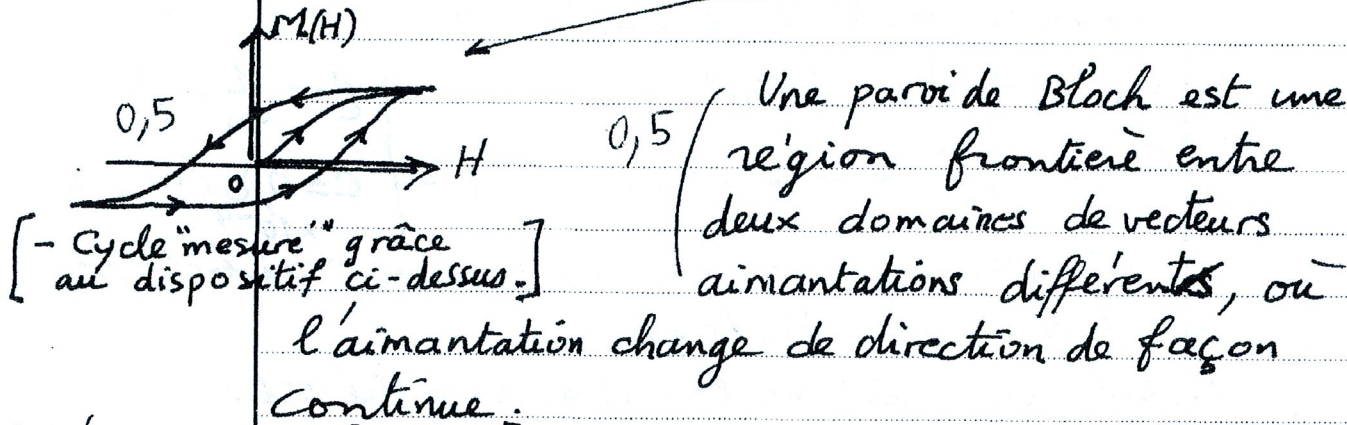 M(H)
0,5
H
0
[- Cycle "mesuré" grâce
au dispositif ci-dessus.]
0,5
Une paroi de Bloch est une
région frontière entre
deux domaines de vecteurs
aimantations différents, où
l'aimantation change de direction de façon
continue.